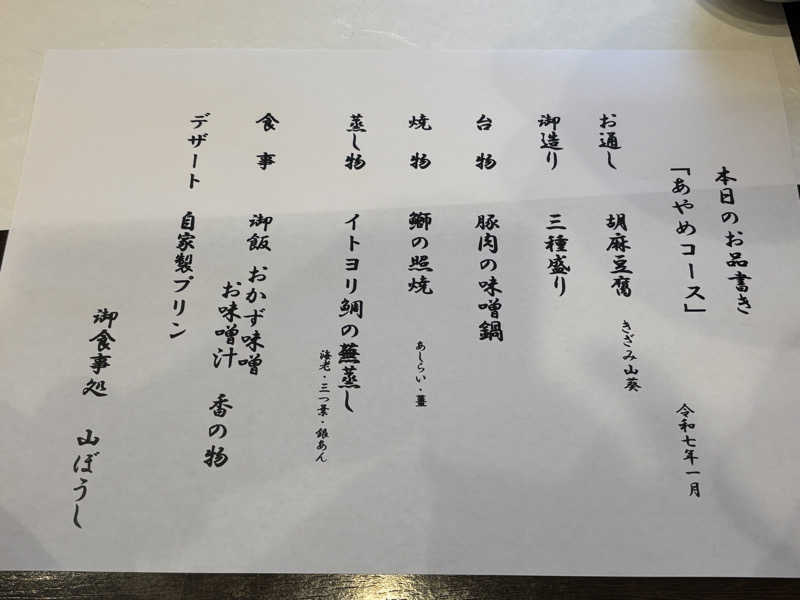 本日のお品書き
「あやめコース」 令和七年一月
お通し 胡麻豆腐 きざみ山葵
御造り 三種盛り
台物 豚肉の味噌鍋
焼物 鰤の照焼 あしらい・薑
蒸し物 イトヨリ鯛の蕪蒸し
海老・三つ葉・銀あん
食事 御飯 おかず味噌
お味噌汁 香の物
デザート 自家製プリン
御食事処 山ぼうし